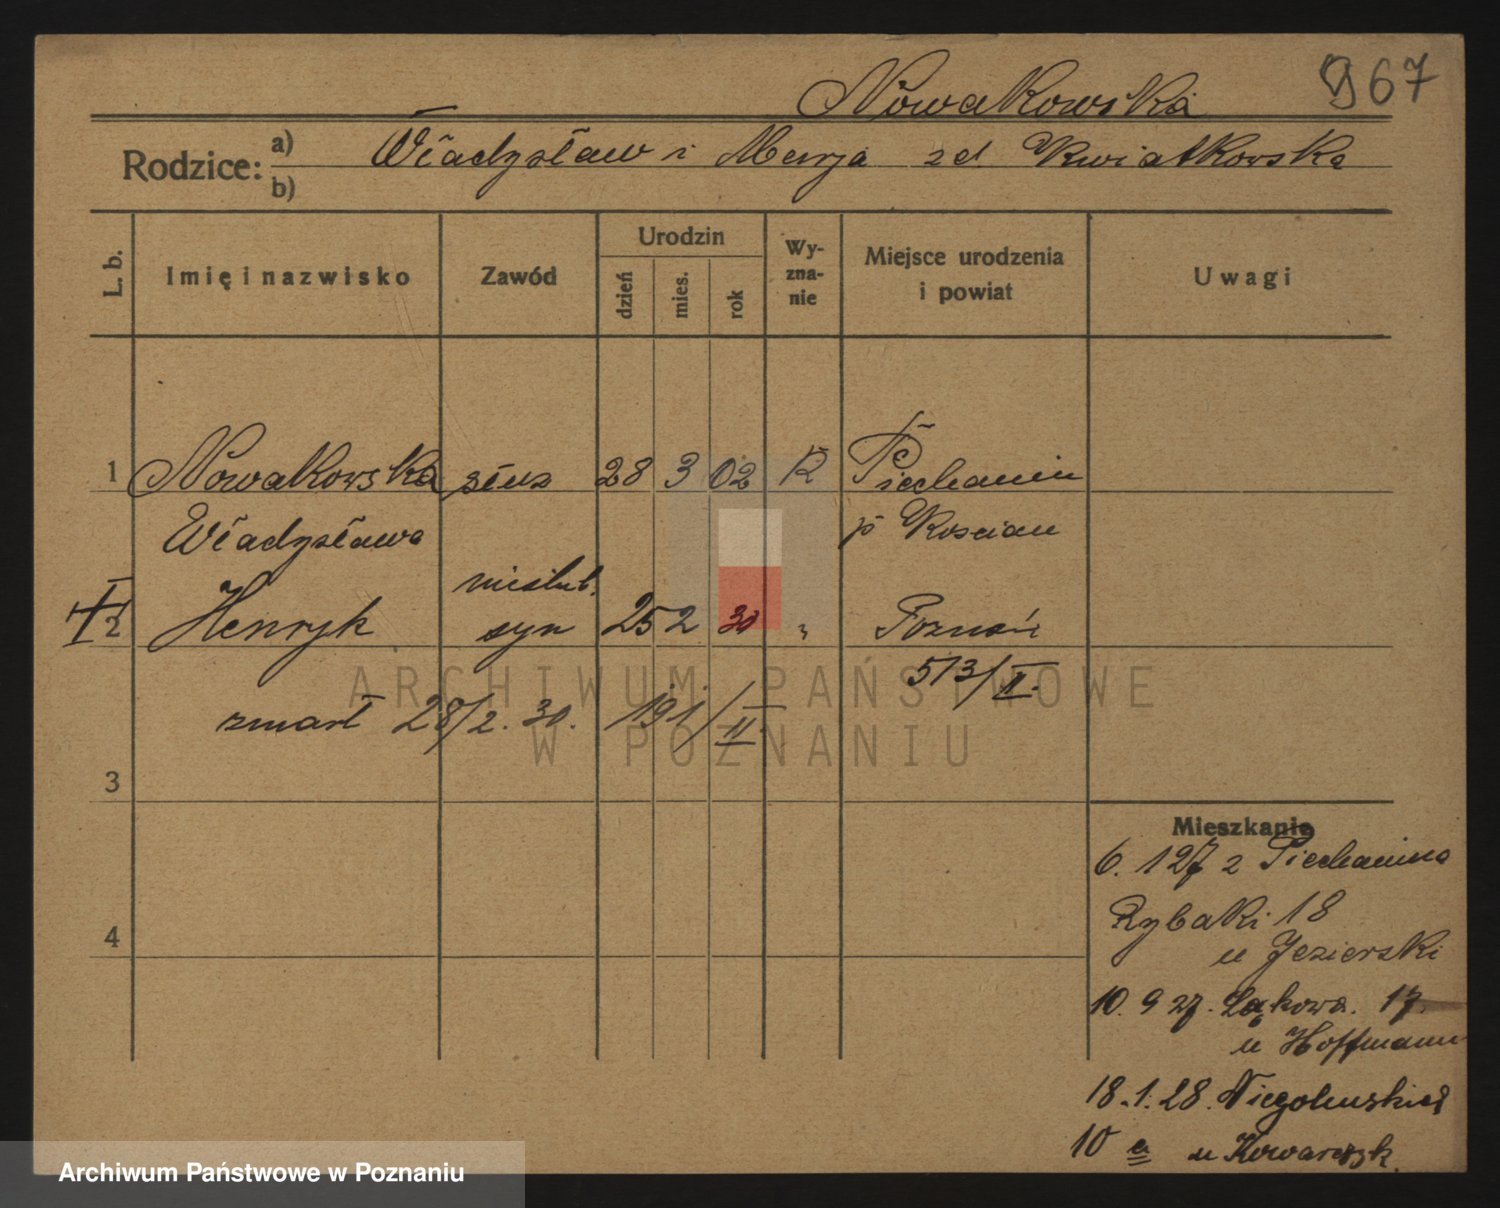 Nowakowska 967
Rodzice: a) Władysław i Marja zd Kwiatkowska
b)
L. b. Imię i nazwisko Zawód Urodzin dzień mies. rok Wyznanie Miejsce urodzenia i powiat Uwagi
1 Nowakowska służ 28 3 02 R Piechanin
Władysława p Kościan
nieślub.
2 Henryk syn 25 2 30 „ Poznań
513/II.
zmarł 28/2. 30. 191/II
ARCHIWUM PAŃSTWOWE
W POZNANIU
3
Mieszkanie
6. 1 27 z Piechanina
4
Rybaki 18
u Jezierski
10. 9 27. Łąkowa. 17.
u Hoffmann
18.1.28. Niegolewskich
10 a u Kowarczyk.
Archiwum Państwowe w Poznaniu